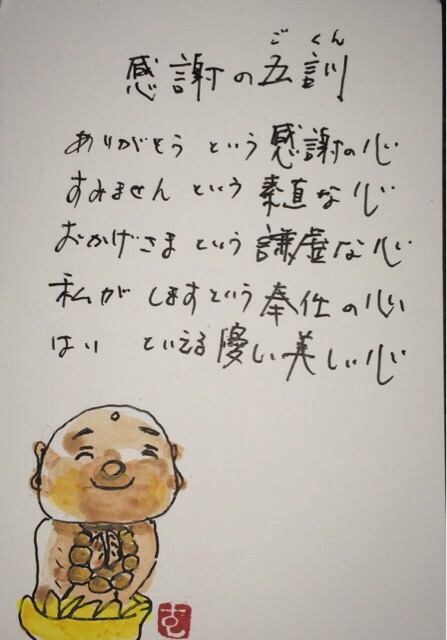 ごくん
感謝の五訓
ありがとう という 感謝の心
すみません という 素直な心
おかげさま という 謙虚な心
私が しますという 奉仕の心
はい といえる 優しい 美しい心